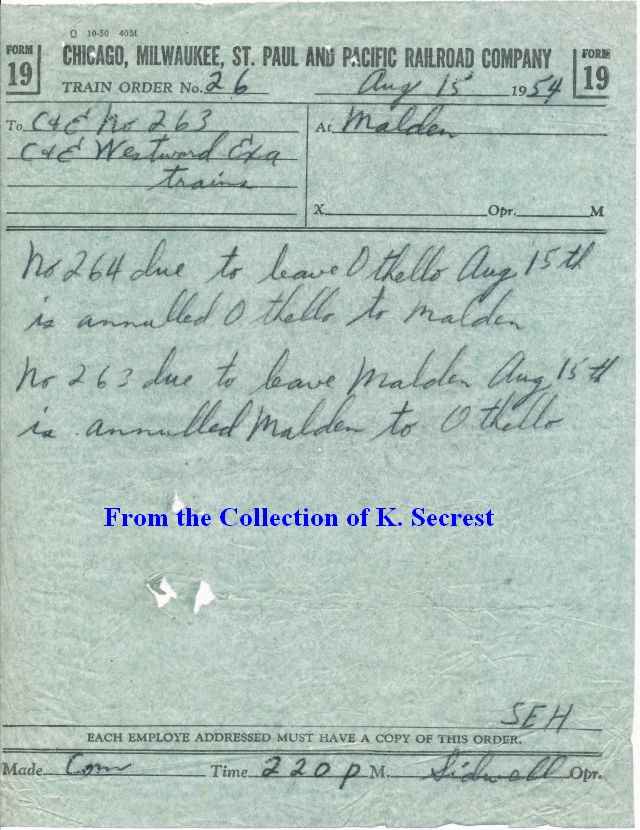 Q 10-50 40M
FORM 19 CHICAGO, MILWAUKEE, ST. PAUL AND PACIFIC RAILROAD COMPANY FORM 19
TRAIN ORDER No. 26 Aug 15 1954
To C&E No 263 At Malden
C&E Westward Exa
trains
X. Opr. M
No 264 due to leave Othello Aug 15th
is annulled Othello to Malden
No 263 due to leave Malden Aug 15th
is annulled Malden to Othello
From the Collection of K. Secrest
SEH
EACH EMPLOYE ADDRESSED MUST HAVE A COPY OF THIS ORDER.
Made Com Time 220 P M. Sidwell Opr.